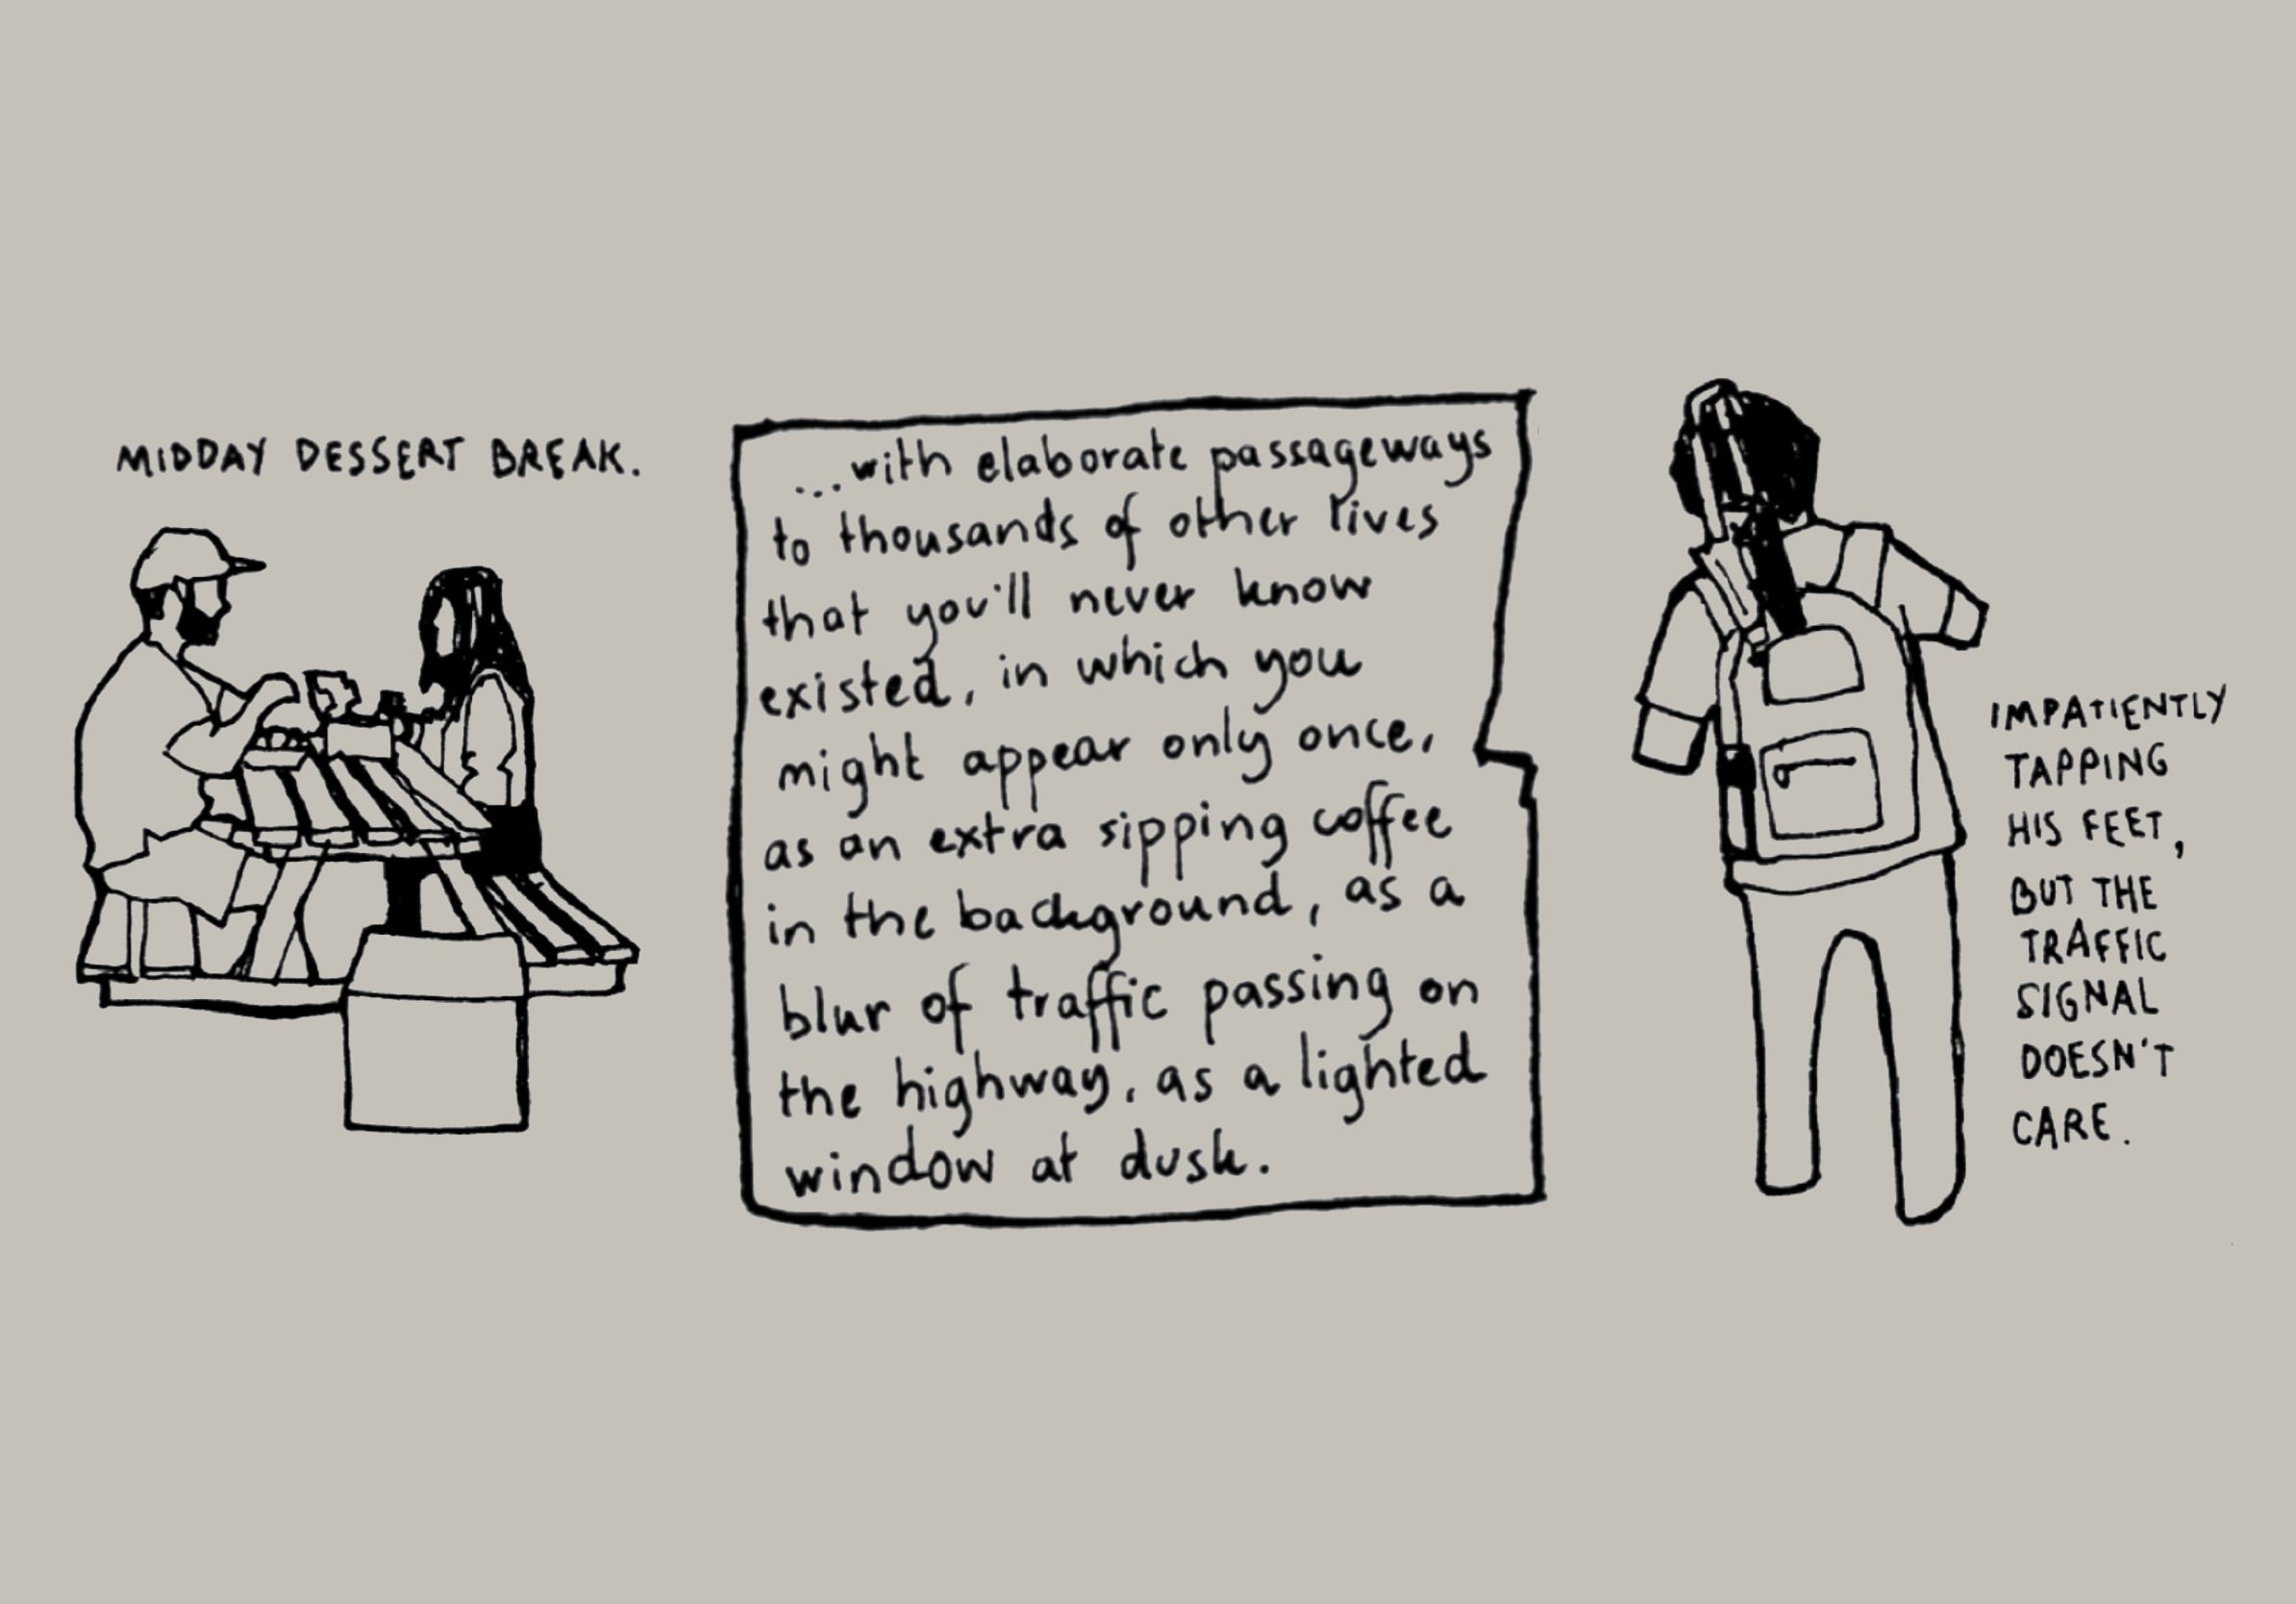 MIDDAY DESSERT BREAK.
...with elaborate passageways
to thousands of other lives
that you'll never know
existed, in which you
might appear only once,
as an extra sipping coffee
in the background, as a
blur of traffic passing on
the highway, as a lighted
window at dusk.
IMPATIENTLY
TAPPING
HIS FEET,
BUT THE
TRAFFIC
SIGNAL
DOESN'T
CARE.